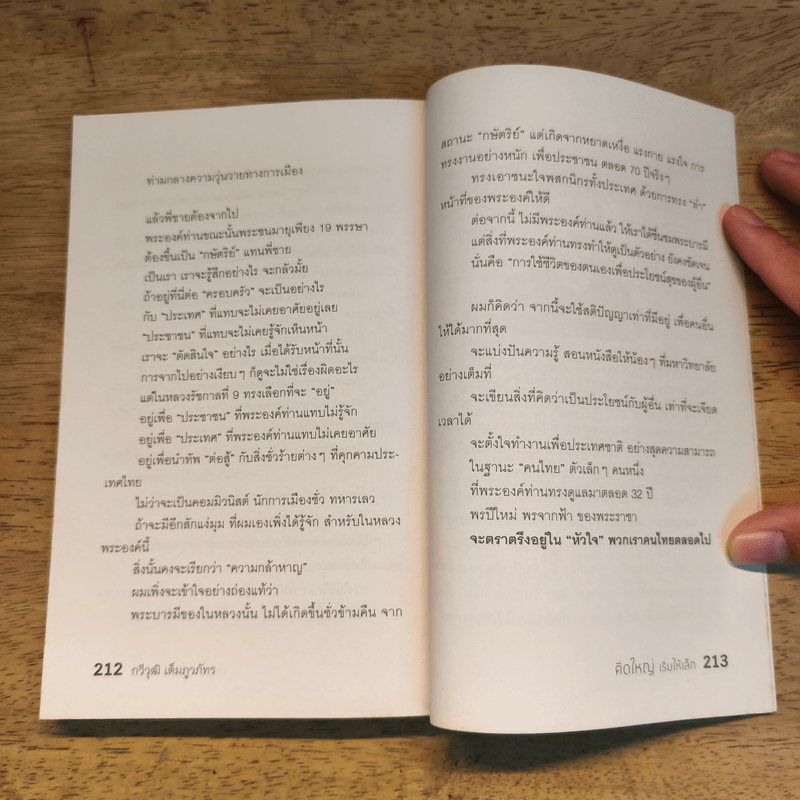 ท่ามกลางความวุ่นวายทางการเมือง
แล้วพี่ชายต้องจากไป
พระองค์ท่านขณะนั้นพระชนมายุเพียง 19 พรรษา
ต้องขึ้นเป็น “กษัตริย์” แทนพี่ชาย
เป็นเรา เราจะรู้สึกอย่างไร จะกลัวมั้ย
ถ้าอยู่ที่นี่ต่อ “ครอบครัว” จะเป็นอย่างไร
กับ “ประเทศ” ที่แทบจะไม่เคยอาศัยอยู่เลย
“ประชาชน” ที่แทบจะไม่เคยรู้จักเห็นหน้า
เราจะ “ตัดสินใจ” อย่างไร เมื่อได้รับหน้าที่นั้น
การจากไปอย่างเงียบๆ ก็ดูจะไม่ใช่เรื่องผิดอะไร
แต่ในหลวงรัชกาลที่ 9 ทรงเลือกที่จะ “อยู่”
อยู่เพื่อ “ประชาชน” ที่พระองค์ท่านแทบไม่รู้จัก
อยู่เพื่อ “ประเทศ” ที่พระองค์ท่านแทบไม่เคยอาศัย
อยู่เพื่อนำทัพ “ต่อสู้” กับสิ่งชั่วร้ายต่างๆ ที่คุกคามประ-
เทศไทย
ไม่ว่าจะเป็นคอมมิวนิสต์ นักการเมืองชั่ว ทหารเลว
ถ้าจะมีอีกสักแง่มุม ที่ผมเองเพิ่งได้รู้จัก สำหรับในหลวง
พระองค์นี้
สิ่งนั้นคงจะเรียกว่า “ความกล้าหาญ”
ผมเพิ่งจะเข้าใจอย่างถ่องแท้ว่า
พระบารมีของในหลวงนั้น ไม่ได้เกิดขึ้นชั่วข้ามคืน จาก
212 กวีวุฒิ เต็มภูวภัทร
สถานะ “กษัตริย์” แต่เกิดจากหยาดเหงื่อ แรงกาย แรงใจ การ
ทรงงานอย่างหนัก เพื่อประชาชน ตลอด 70 ปีจริงๆ
ทรงเอาชนะใจพสกนิกรทั้งประเทศ ด้วยการทรง “ทำ”
หน้าที่ของพระองค์ให้ดี
ต่อจากนี้ ไม่มีพระองค์ท่านแล้ว ให้เราได้ชื่นชมพระบารมี
แต่สิ่งที่พระองค์ท่านทรงทำให้ดูเป็นตัวอย่าง ยังคงชัดเจน
นั่นคือ “การใช้ชีวิตของตนเองเพื่อประโยชน์สุขของผู้อื่น”
ผมก็คิดว่า จากนี้จะใช้สติปัญญาเท่าที่มีอยู่ เพื่อคนอื่น
ให้ได้มากที่สุด
จะแบ่งปันความรู้ สอนหนังสือให้น้องๆ ที่มหาวิทยาลัย
อย่างเต็มที่
จะเขียนสิ่งที่คิดว่าเป็นประโยชน์กับผู้อื่น เท่าที่จะเจียด
เวลาได้
จะตั้งใจทำงานเพื่อประเทศชาติ อย่างสุดความสามารถ
ในฐานะ “คนไทย” ตัวเล็กๆ คนหนึ่ง
ที่พระองค์ท่านทรงดูแลมาตลอด 32 ปี
พรปีใหม่ พรจากฟ้า ของพระราชา
จะตราตรึงอยู่ใน “หัวใจ” พวกเราคนไทยตลอดไป
คิดใหญ่ เริ่มให้เล็ก 213